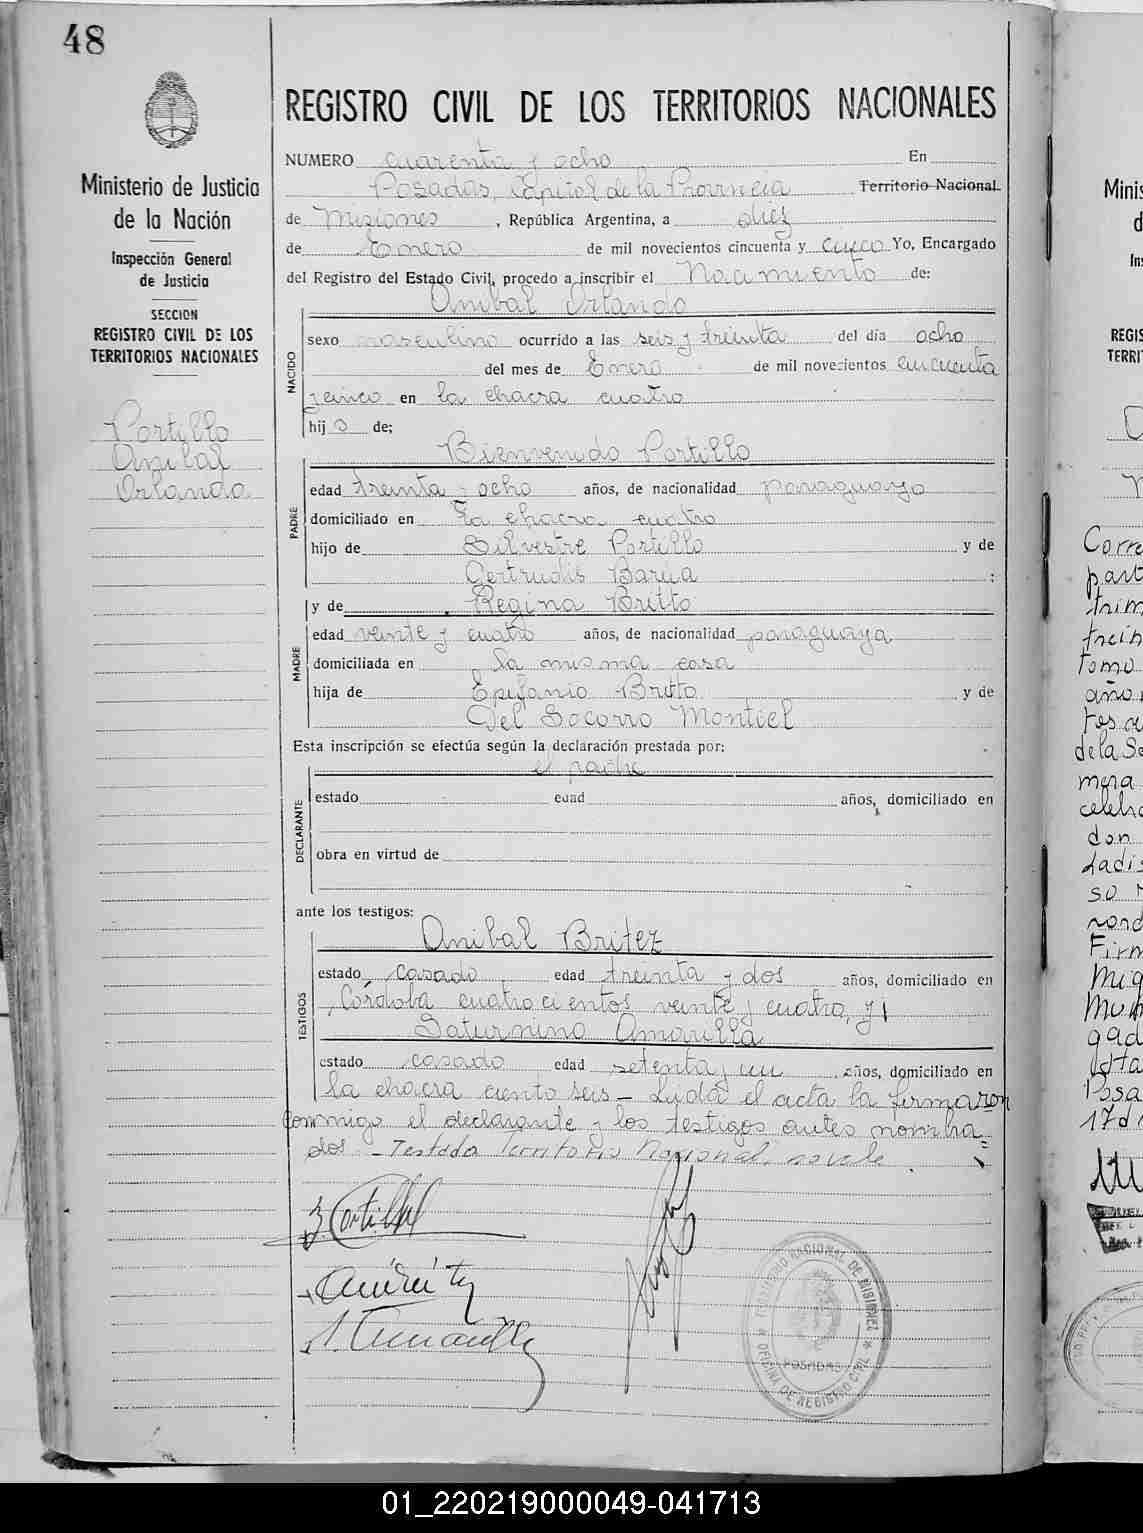 48
Ministerio de Justicia
de la Nación
Inspección General
de Justicia
SECCION
REGISTRO CIVIL DE LOS
TERRITORIOS NACIONALES
Portillo
Anibal
Orlando
REGISTRO CIVIL DE LOS TERRITORIOS NACIONALES
NUMERO cuarenta y ocho En
Posadas, Capital de la Provincia Territorio Nacional
de Misiones, República Argentina, a diez
de Enero de mil novecientos cincuenta y cinco Yo, Encargado
del Registro del Estado Civil, procedo a inscribir el Nacimiento de:
Anibal Orlando
NACIDO
sexo masculino ocurrido a las seis y treinta del día ocho
del mes de Enero de mil novecientos cincuenta
y cinco en la chacra cuatro
hijo de;
Bienvenido Portillo
PADRE
edad treinta y ocho años, de nacionalidad paraguayo
domiciliado en la chacra cuatro
hijo de Silvestre Portillo y de
Gertrudis Barúa :
y de Regina Britto
MADRE
edad veinte y cuatro años, de nacionalidad paraguaya
domiciliada en la misma casa
hija de Epifanio Britto y de
Del Socorro Montiel
Esta inscripción se efectúa según la declaración prestada por:
el padre
DECLARANTE
estado edad años, domiciliado en
obra en virtud de
ante los testigos:
Anibal Britez
TESTIGOS
estado casado edad treinta y dos años, domiciliado en
Córdoba cuatrocientos veinte y cuatro, y
Saturnino Amarilla
estado casado edad setenta y un años, domiciliado en
la chacra ciento seis - Leída el acta la firmaron
conmigo el declarante y los testigos antes nombra=
dos. - Testado Territorio Nacional, no vale.
B. Portillo
TERRITORIO NACIONAL DE MISIONES
OFICINA DE REGISTRO CIVIL
POSADAS
Minis
d
Ins
REGIS
TERRI
Corre
part
trim
trein
tomo
año
tes
de la Se
mera
celebr
don
Ladis
so
Firm
Mig
Posa
17 d
01_220219000049-041713